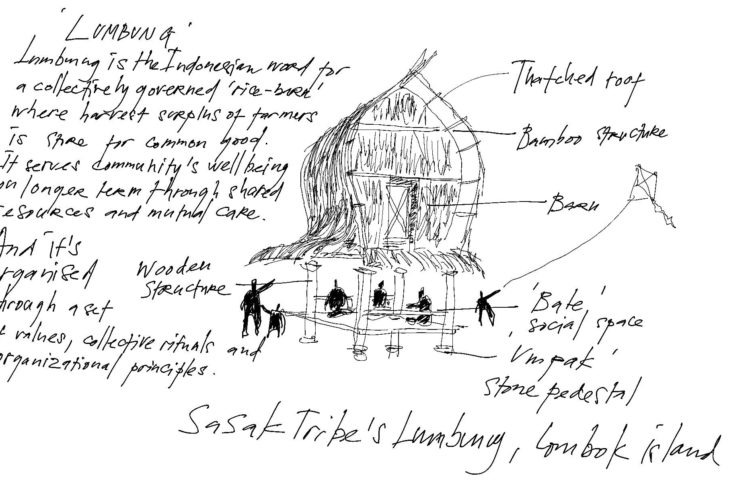 'LUMBUNG'
Lumbung is the Indonesian word for
a collectively governed 'rice-barn'
where harvest surplus of farmers
is store for common good.
It serves community's well being
on longer term through shared
resources and mutual care.
And it's
organised
through a set
of values, collective rituals and
organizational principles.
Thatched roof
Bamboo structure
Barn
Wooden
structure
'Bate'
social space
'Umpak'
Stone pedestal
Sasak Tribe's Lumbung, Lombok island